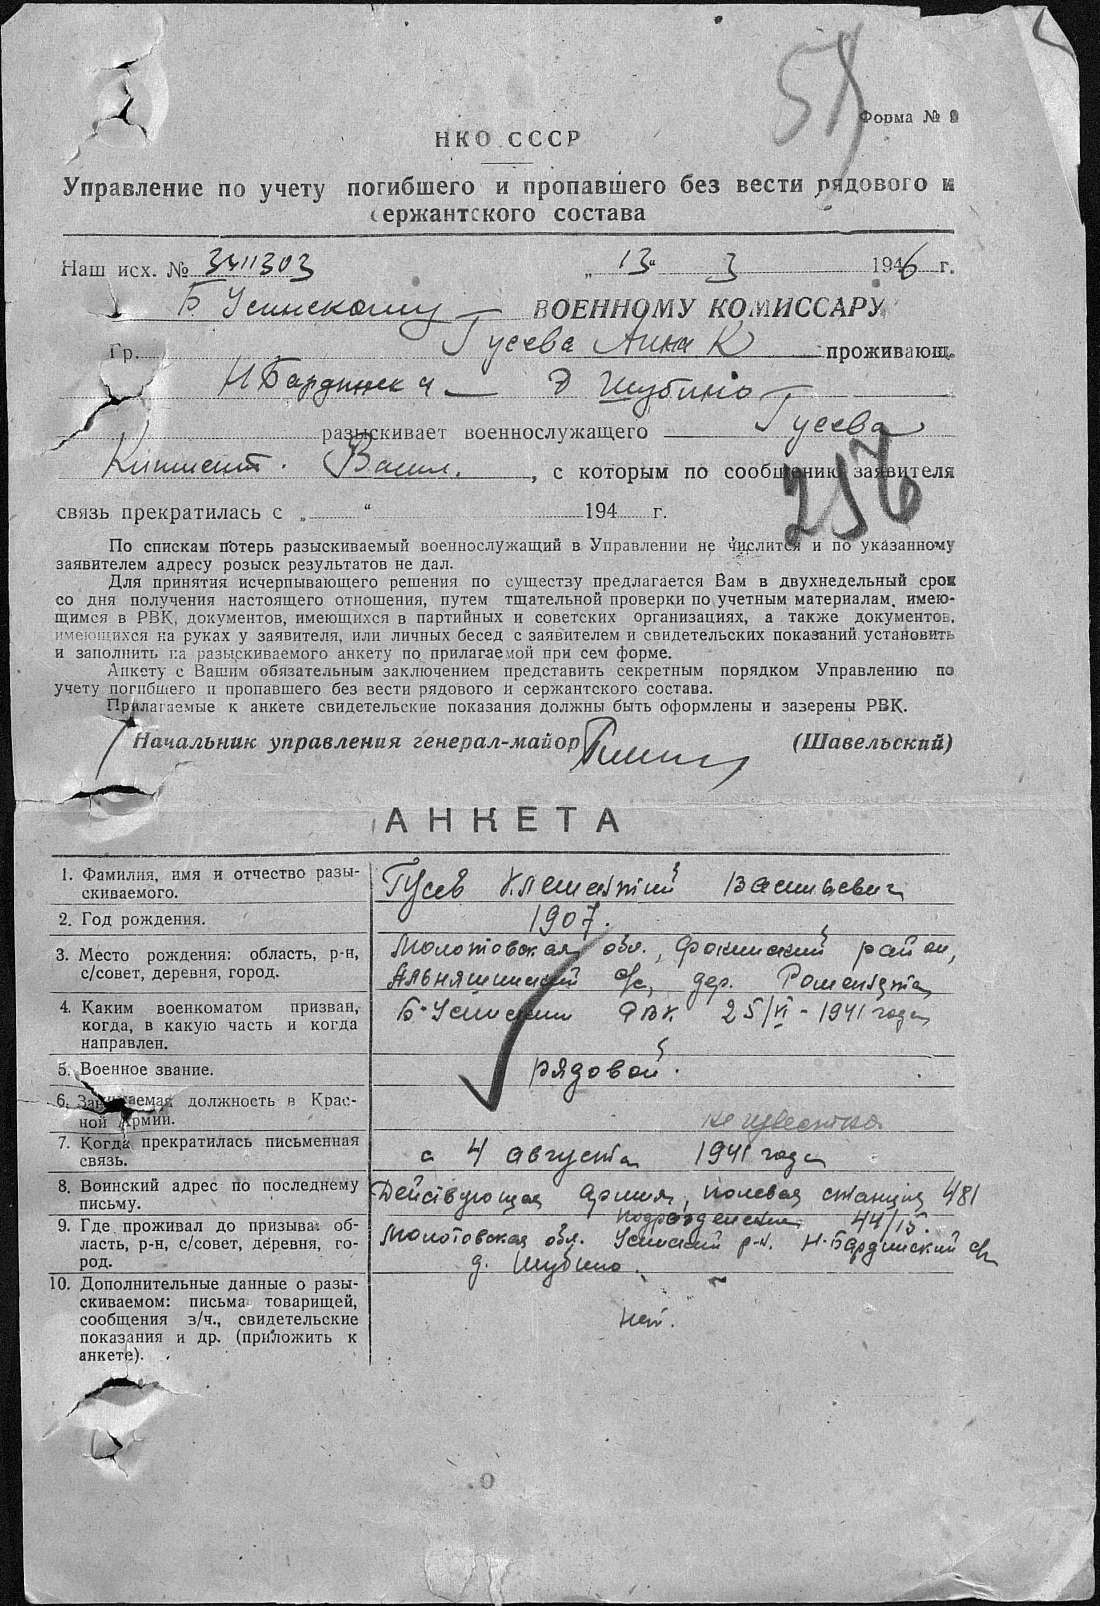 Форма № 9
НКО СССР
Управление по учету погибшего и пропавшего без вести рядового и
сержантского состава
Наш исх. № „ 13 “ 3 1946 г.
Б Усинскому ВОЕННОМУ КОМИССАРУ
Гр. Гусева Анна К проживающ.
Н Бардинск д Шубино
разыскивает военнослужащего Гусева
Климент. Васил. , с которым по сообщению заявителя
256
связь прекратилась с „ “ 194 г.
По спискам потерь разыскиваемый военнослужащий в Управлении не числится и по указанному
заявителем адресу розыск результатов не дал.
Для принятия исчерпывающего решения по существу предлагается Вам в двухнедельный срок
со дня получения настоящего отношения, путем тщательной проверки по учетным материалам, имею-
щимся в РВК, документов, имеющихся в партийных и советских организациях, а также документов,
имеющихся на руках у заявителя, или личных бесед с заявителем и свидетельских показаний установить
и заполнить на разыскиваемого анкету по прилагаемой при сем форме.
Анкету с Вашим обязательным заключением представить секретным порядком Управлению по
учету погибшего и пропавшего без вести рядового и сержантского состава.
Прилагаемые к анкете свидетельские показания должны быть оформлены и заверены РВК.
Начальник управления генерал-майор (Шавельский)
АНКЕТА
1. Фамилия, имя и отчество разы-
скиваемого.
Гусев Клементий Васильевич
2. Год рождения.
1907.
3. Место рождения: область, р-н,
с/совет, деревня, город.
Молотовская обл., Фокинский район,
Альняшинский с/с, дер.
4. Каким военкоматом призван,
когда, в какую часть и когда
направлен.
Б-Усинским РВК 25/VI - 1941 года
5. Военное звание.
рядовой.
6. Занимаемая должность в Крас-
ной Армии.
неизвестна
7. Когда прекратилась письменная
связь.
с 4 августа 1941 года
8. Воинский адрес по последнему
письму.
Действующая армия, полевая станция 481
подразделение 44/15.
9. Где проживал до призыва: об-
ласть, р-н, с/совет, деревня, го-
род.
Молотовская обл. Усинский р-н. Н-Бардинский с/с
д. Шубино.
10. Дополнительные данные о разы-
скиваемом: письма товарищей,
сообщения в/ч., свидетельские
показания и др. (приложить к
анкете).
нет.